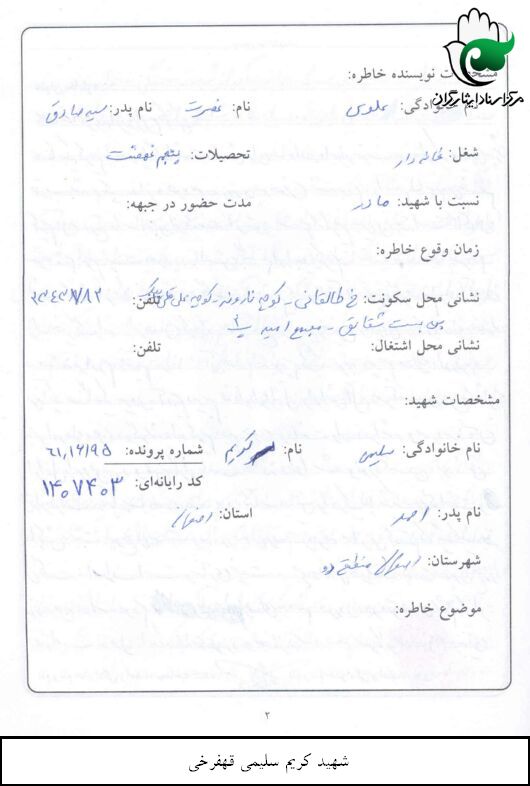 مرکز اسناد ایثارگران
مشخصات نویسنده خاطره:
نام خانوادگی: علوی نام: نصرت نام پدر: سید صادق
شغل: خانه دار تحصیلات: پنجم نهضت
نسبت با شهید: مادر مدت حضور در جبهه:
زمان وقوع خاطره:
نشانی محل سکونت: خ طالقانی - کوچه تلفن:
بن بست شقایق - مجتمع امید
نشانی محل اشتغال: تلفن:
مشخصات شهید:
نام خانوادگی: سلیمی نام: کریم شماره پرونده: ۶۱,۱۶۱۹۵
کد رایانه‌ای: ۱۴۰۷۴۰۳
نام پدر: احمد استان: اصفهان
شهرستان: اصفهان منطقه دو
موضوع خاطره:
۲
شهید کریم سلیمی قهفرخی